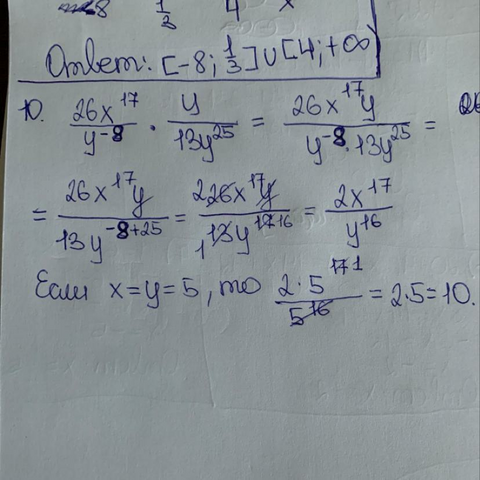 -8 1/3 4 x
Ответ: [-8; 1/3] ∪ [4; +∞)
10. 26x^17/y^-8 · y/13y^25 = 26x^17y/y^-8·13y^25 =
= 26x^17y/13y^-8+25 = 2 26x^17y/1 13y^17 16 = 2x^17/y^16
Если x=y=5, то 2·5^17 1/5^16 = 2·5=10.